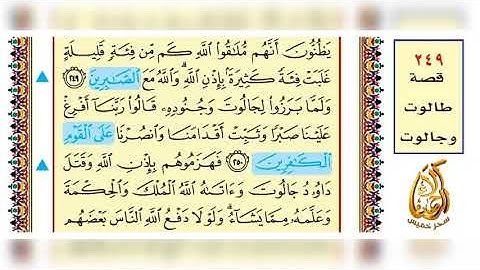 يَظُنُّونَ أَنَّهُم مُّلَٰقُوا۟ ٱللَّهِ كَم مِّن فِئَةٍ قَلِيلَةٍ
غَلَبَتْ فِئَةً كَثِيرَةً بِإِذْنِ ٱللَّهِ ۗ وَٱللَّهُ مَعَ ٱلصَّٰبِرِينَ ٢٤٩
وَلَمَّا بَرَزُوا۟ لِجَالُوتَ وَجُنُودِهِۦ قَالُوا۟ رَبَّنَآ أَفْرِغْ
عَلَيْنَا صَبْرًا وَثَبِّتْ أَقْدَامَنَا وَٱنصُرْنَا عَلَى ٱلْقَوْمِ
ٱلْكَٰفِرِينَ ٢٥٠ فَهَزَمُوهُم بِإِذْنِ ٱللَّهِ وَقَتَلَ
دَاوُۥدُ جَالُوتَ وَءَاتَىٰهُ ٱللَّهُ ٱلْمُلْكَ وَٱلْحِكْمَةَ
وَعَلَّمَهُۥ مِمَّا يَشَآءُ ۗ وَلَوْلَا دَفْعُ ٱللَّهِ ٱلنَّاسَ بَعْضَهُم
٢٤٩
قصة
طالوت
وجالوت
سحر خميس